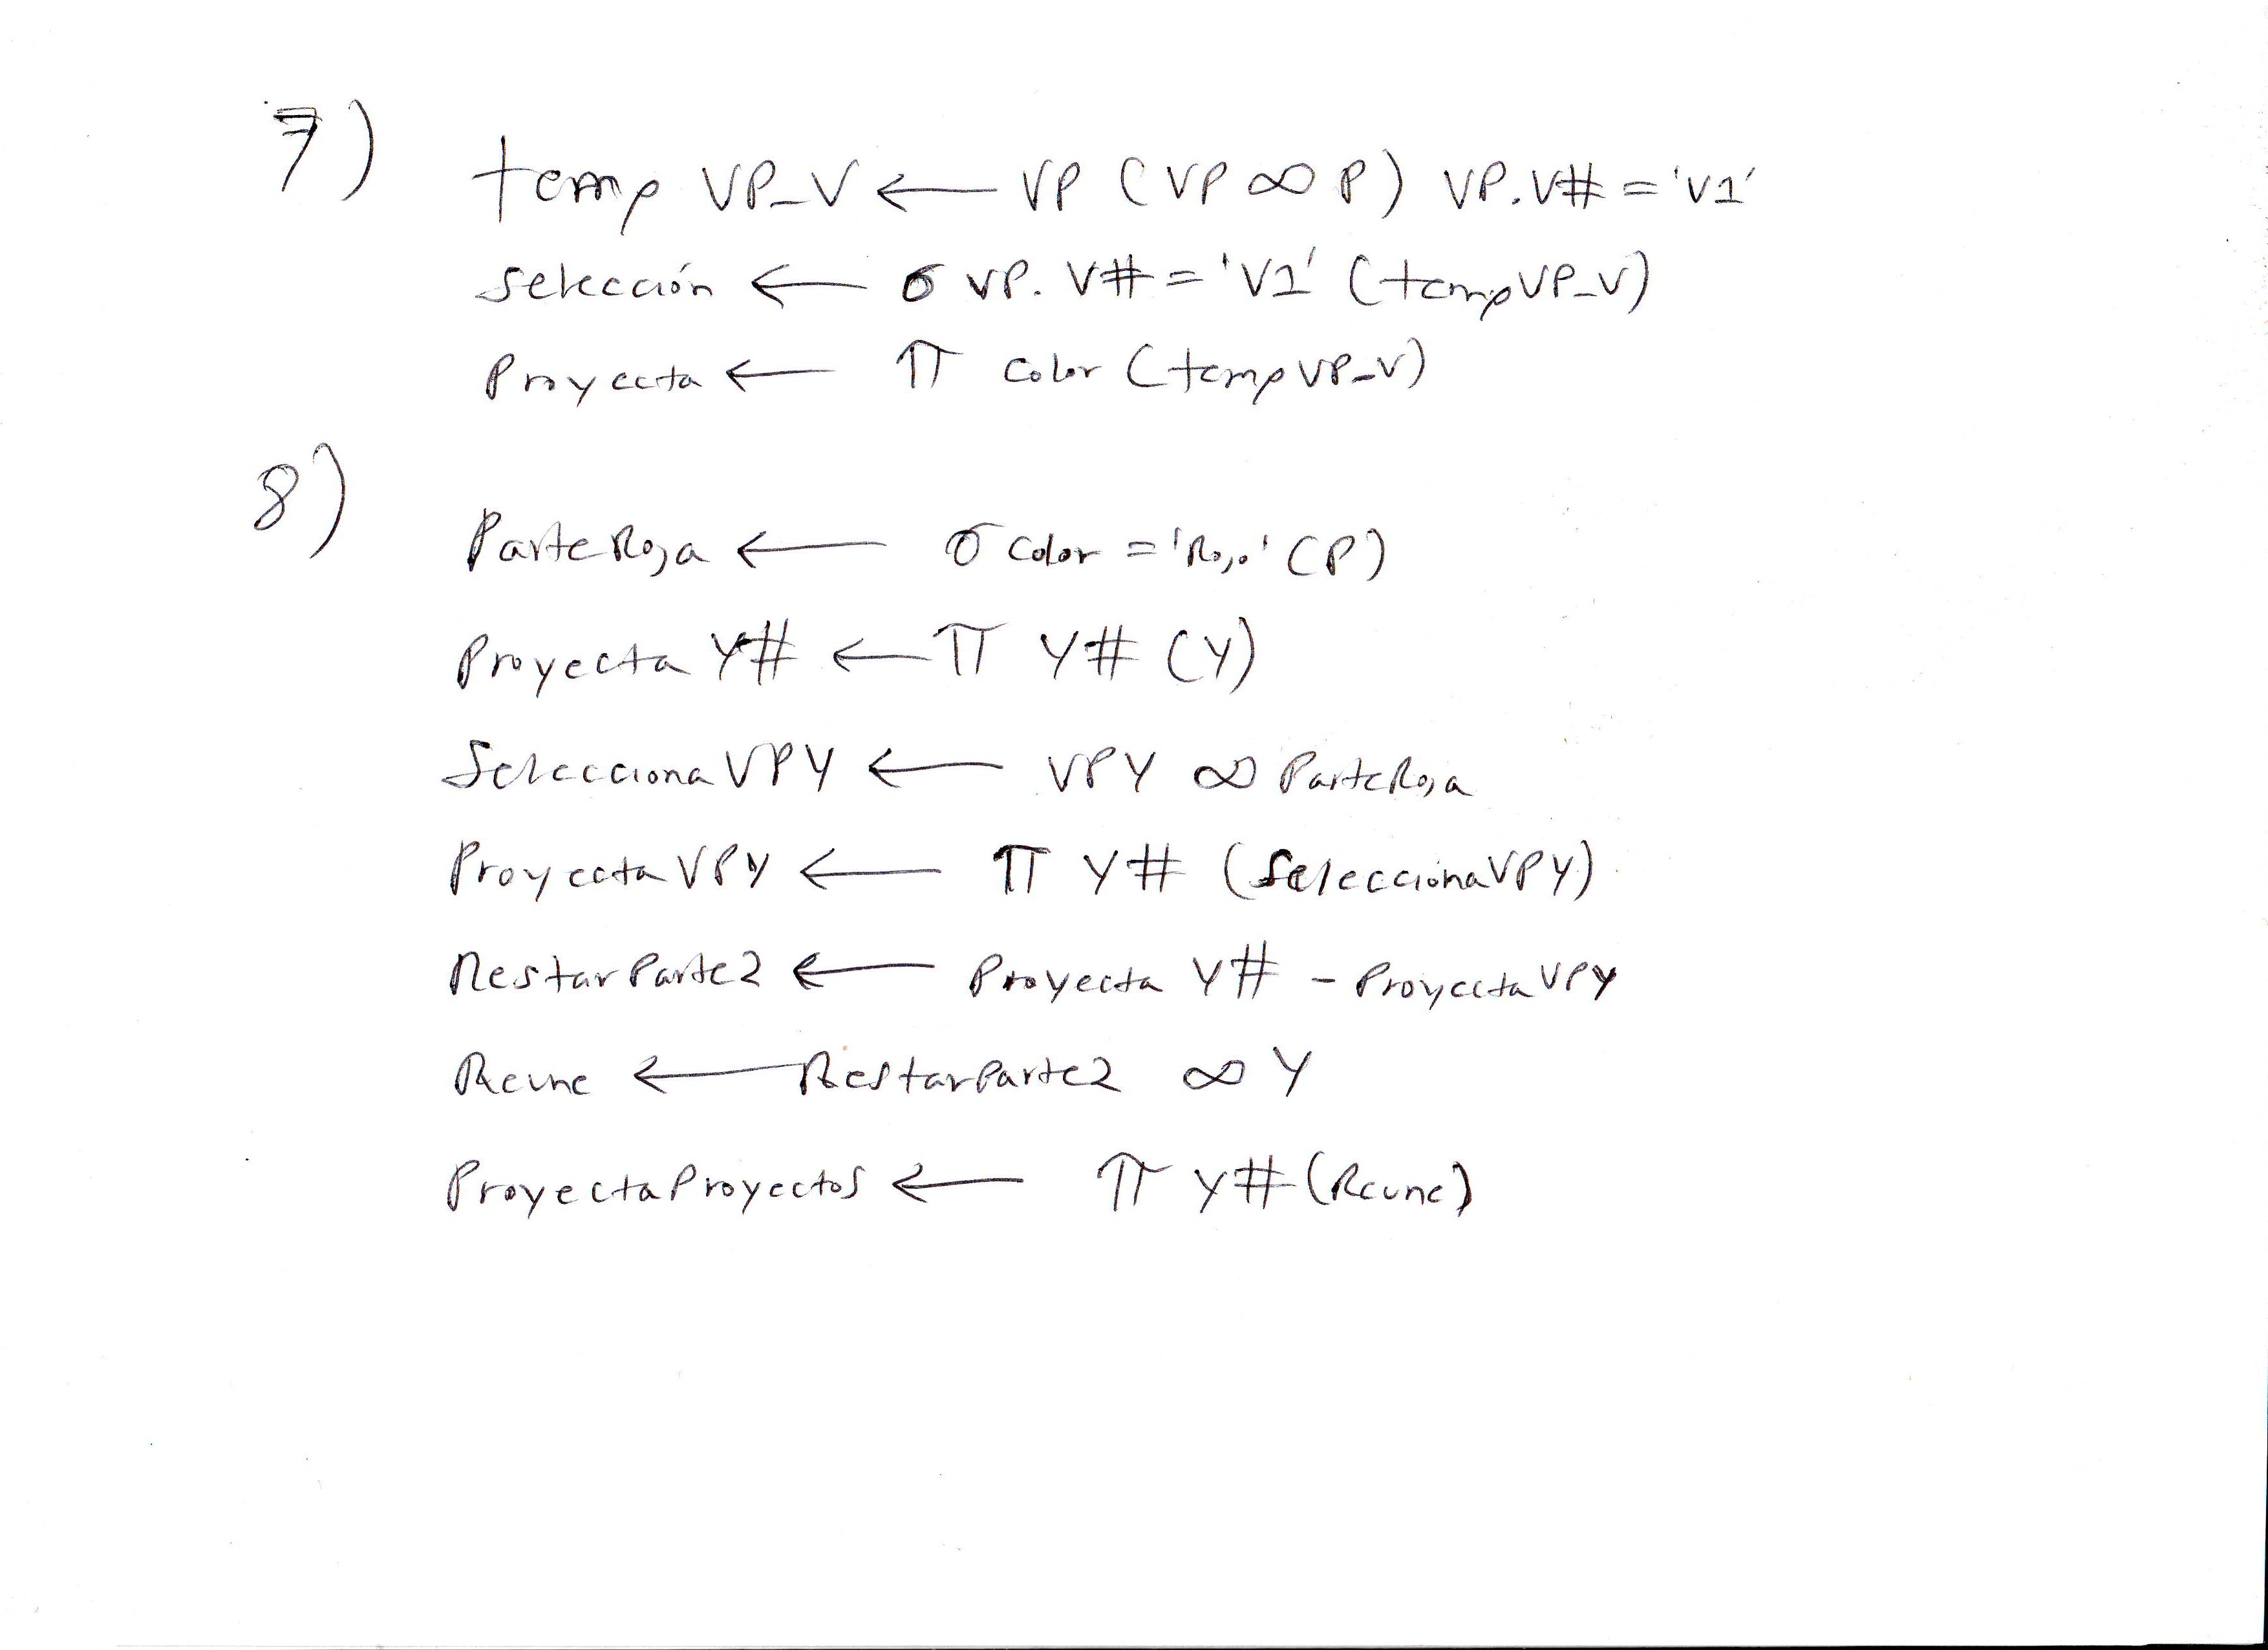 7)
temp VP_V ← VP (VP ∞ P) VP.V# = 'V1'
selección ← σ VP. V# = 'V1' (tempVP_V)
Proyecta ← π color (tempVP_V)
8)
ParteRoja ← σ color = 'Rojo' (P)
Proyecta Y# ← π Y# (Y)
SeleccionaVPY ← VPY ∞ ParteRoja
ProyectaVPY ← π Y# (SeleccionaVPY)
RestarParte2 ← Proyecta Y# - ProyectaVPY
Reune ← RestarParte2 ∞ Y
ProyectaProyectos ← π Y# (Reune)